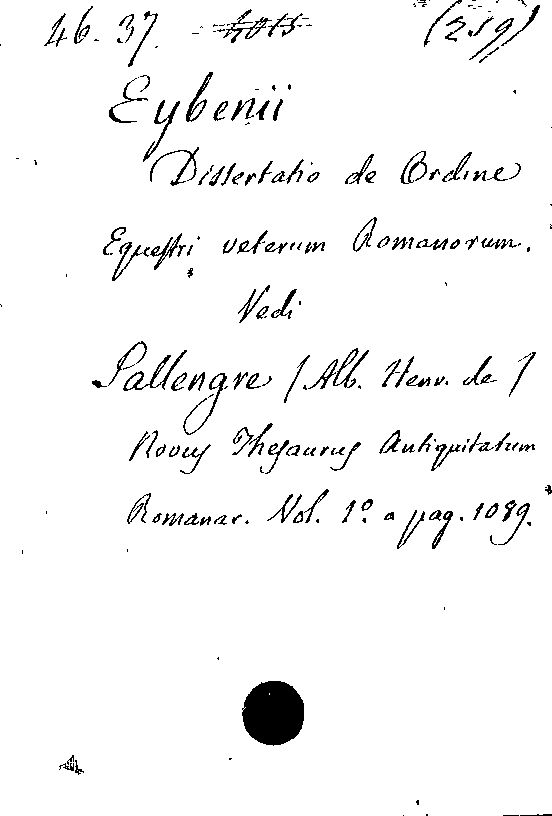 46. 37. 4015 (259)
Eybenii
Dissertatio de Ordine
Equestri veterum Romanorum.
Vedi
Sallengre / Alb. Henr. de /
Novus Thesaurus Antiquitatum
Romanar. Vol. 1º a pag. 1089.